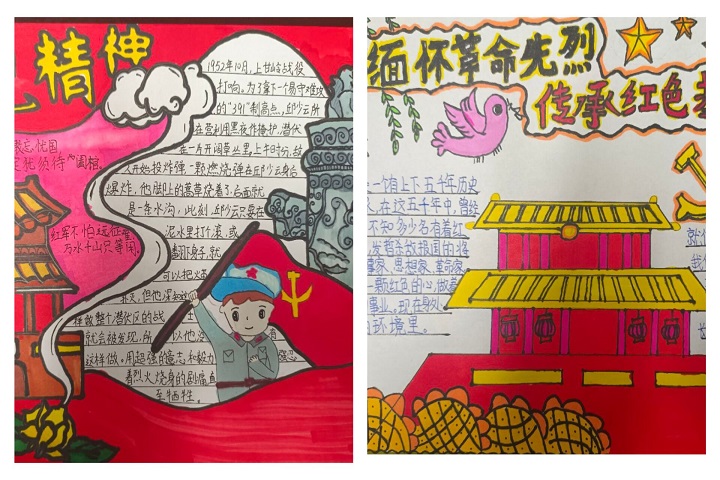 精神
1952年10月,上甘岭战役
打响。为了拿下一个易守难攻
的"391"制高点,邱少云所
在营利用黑夜作掩护,潜伏
在一片开阔草丛里。上午时分,敌
人开始投炸弹一颗燃烧弹在邱少云身后
爆炸,他脚上的蒿草烧着了,后面就
是一条水沟,此刻,邱少云只要在
泥水里打个滚,或
翻个身子,就
可以把火
扑灭,但他深知
样做整个潜伏区的战
就会被发现,所以他没有
这样做。用超强的意志和毅力
着烈火烧身的剧痛直
至牺牲。
忘忧国
犹须待阖棺
红军不怕远征难
万水千山只等闲
缅怀革命先烈
传承红色
一个有上下五千年历史
在这五千年中,曾经
不知多少名有着红
的将
思想家
一颗红色的心,做着
事业。现在身处
环境里。